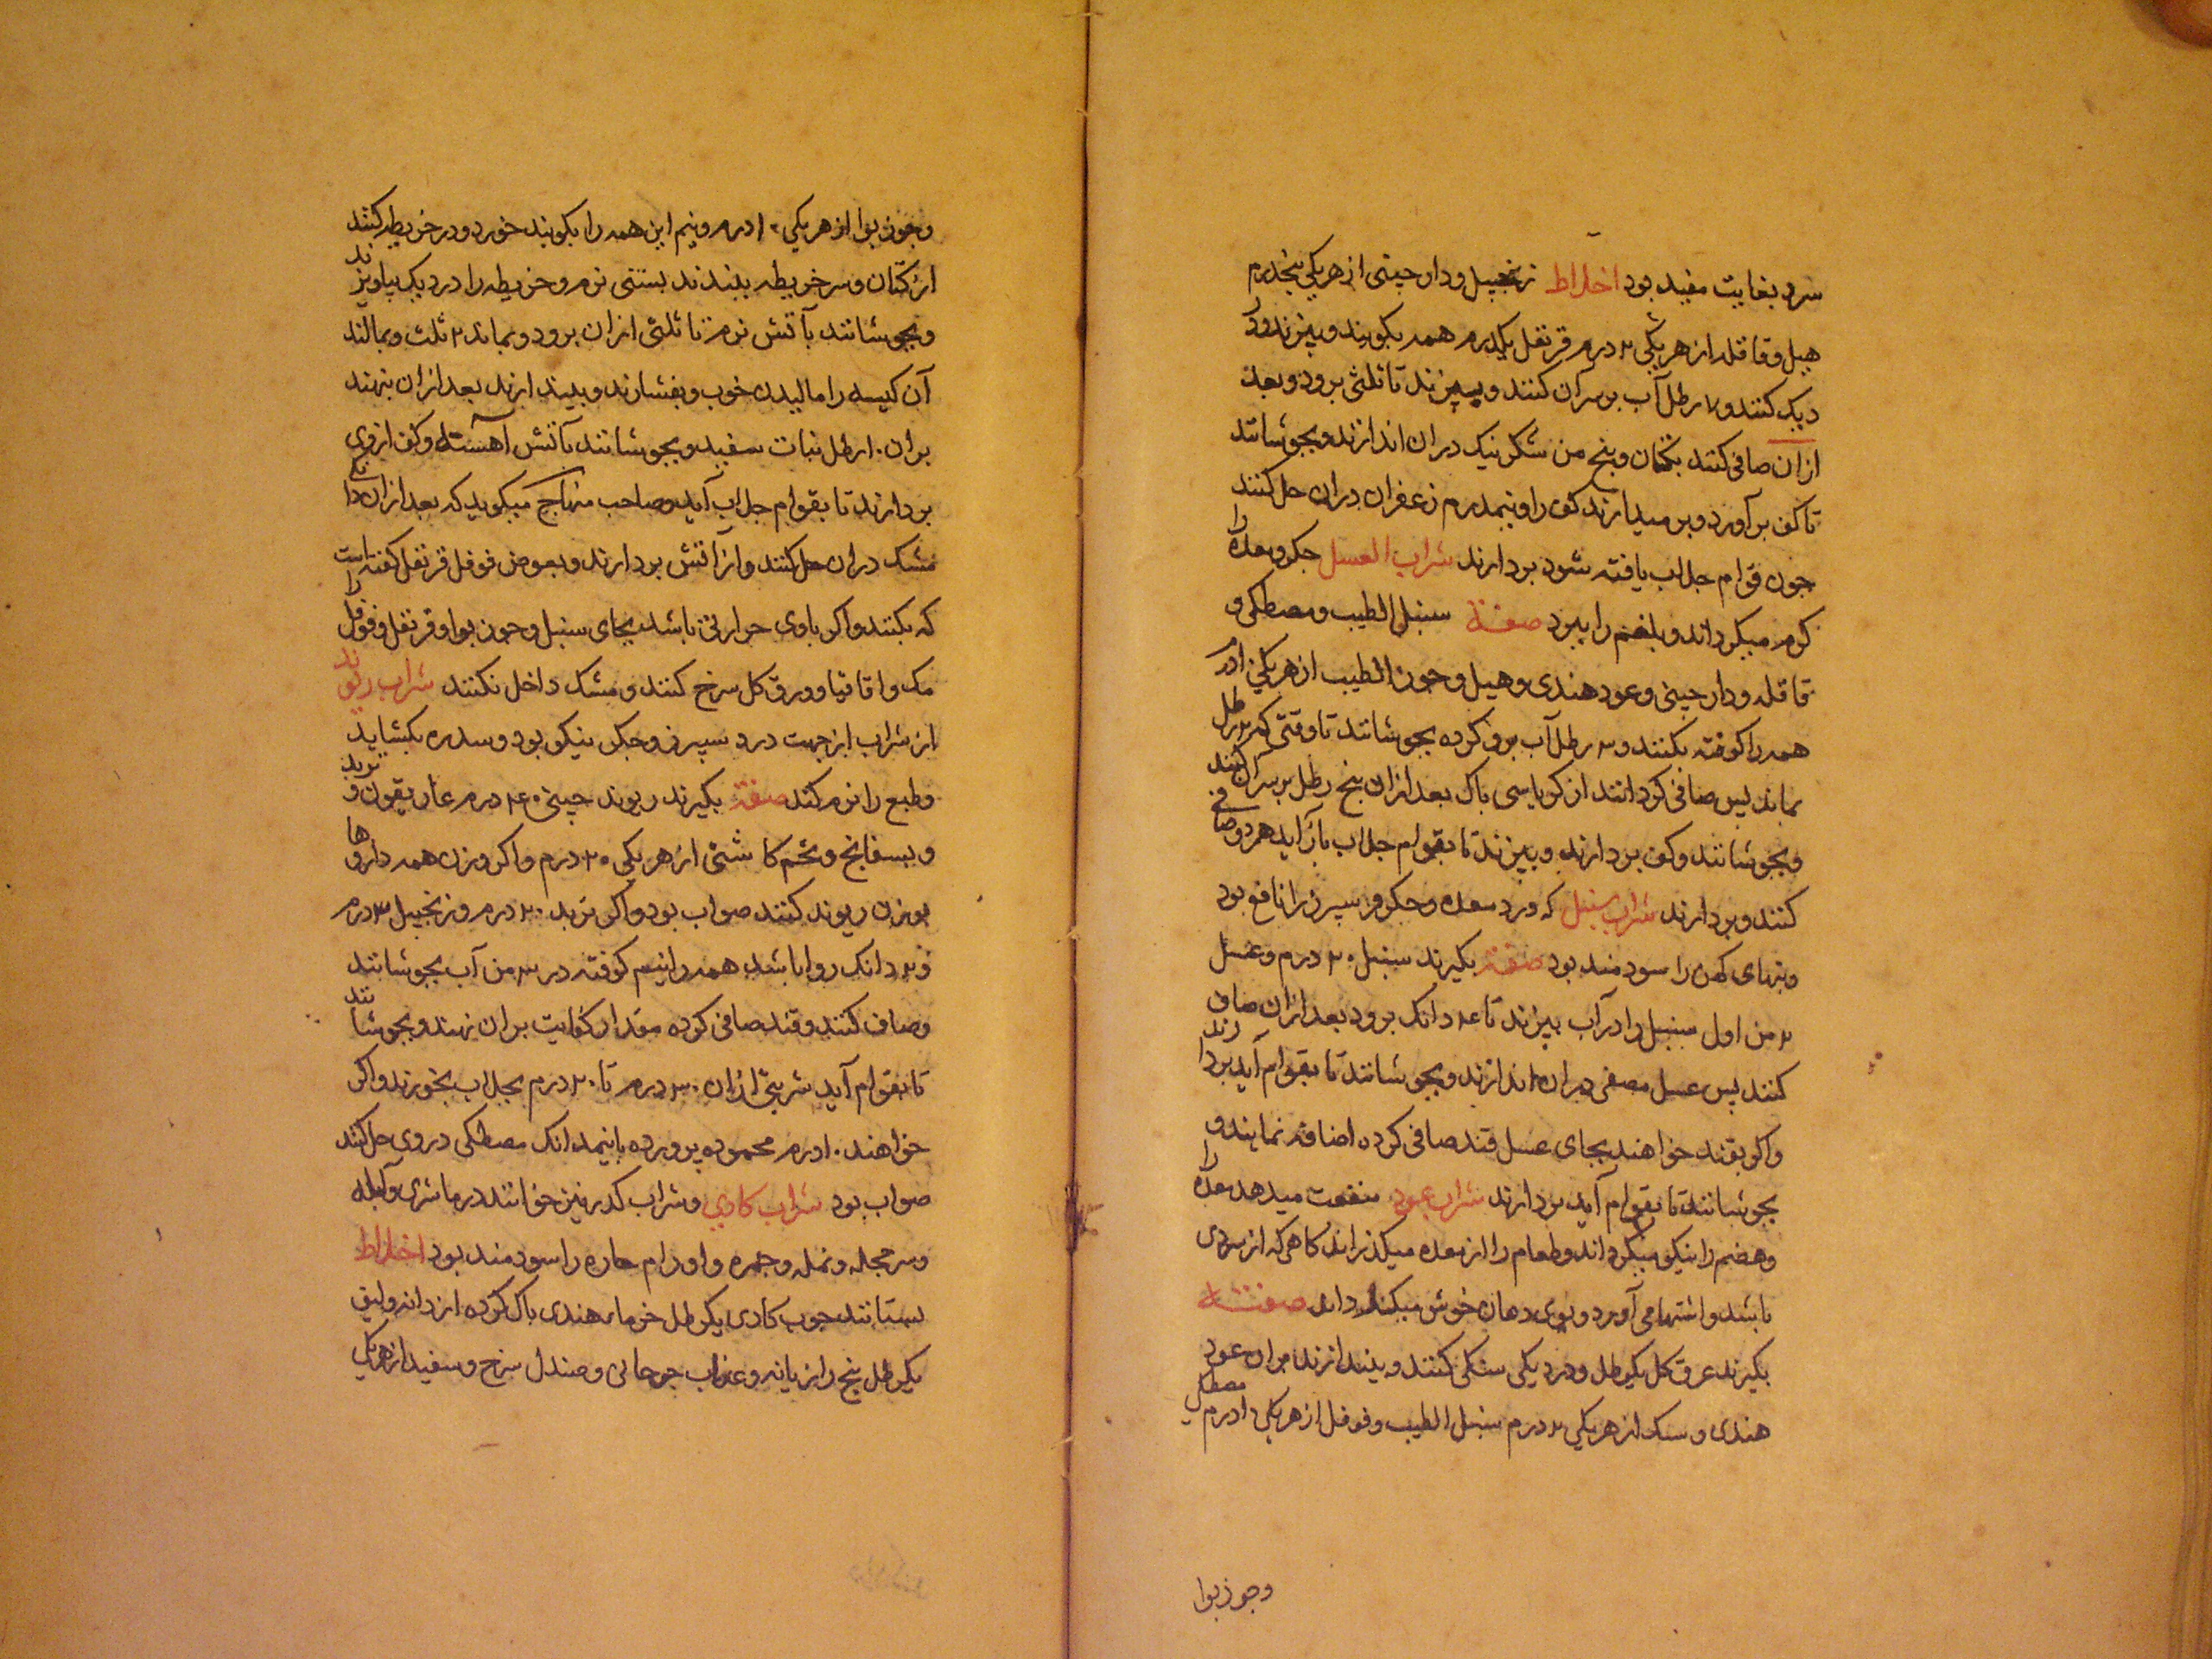 سرد بغایت مفید بود اخلاط زنجبیل ودارچینی از هریکی پنجدرم
هیل وقاقله از هریکی ۲ درم قرنفل یکدرم همه بکوبند وبپزند ودر
دیک کنند و۷ رطل آب بر سر آن کنند وبپزند تا ثلثی برود وبعد
ازان صافی کنند بکتان وپنج من شکر نیک دران اندازند وبجوشانند
تا کف برآورد وبر میدارند کف را ونیمدرم زعفران دران حل کنند
چون قوام جلاب یافته شود بردارند شراب العسل جکر ومعده را
کرم میکرداند وبلغم را ببرد صفة سنبل الطیب ومصطکی و
قاقله ودارچینی وعود هندی وهیل وجوز الطیب از هریکی ادرم
همه را کوفته بکنند و۳ رطل آب برو کرده بجوشانند تا وقتی که ۲ رطل
بماند پس صافی کردانند از کرباسی پاک بعد ازان پنج رطل بر سر آن کنند
وبجوشانند وکف بردارند وبپزند تا بقوام جلاب باز آید هردو صافی
کنند وبردارند شراب سنبل که درد معده وجکر وسپرز را نافع بود
وتبهای کهن را سودمند بود صفة بکیرند سنبل ۲۰ درم وعسل
۲ من اول سنبل را در آب بپزند تا ۴ دانک برود بعد ازان صاف
کنند پس عسل مصفی دران اندازند وبجوشانند تا بقوام آید بردارند
واکر بقند خواهند بجای عسل قند صافی کرده اضافه نمایند و
بجوشانند تا بقوام آید بردارند شراب عود منفعت میدهد معده را
وهضم را نیکو میکرداند وطعام را از معده میکذراند کاهی که از سردی
باشد واشتها می آورد وبوی دهان خوش میکند صفة
بکیرند عرق کل یکرطل ودر دیکی سنکی کنند وبیندازند دران عود
هندی وسک از هریکی ۲ درم سنبل الطیب وفوفل از هریکی ادرم مصطکی
وجوزبوا
وجوز بوا از هریکی ۱۰ درم ونیم این همه را بکوبند خورد ودر خریطه کنند
از کتان وسر خریطه ببندند بستنی نرم وخریطه را در دیک بیاویزند
وبجوشانند بآتش نرم تا ثلثی ازان برود وبماند ۲ ثلث وبمالند
آن کیسه را مالیدن خوب وبفشارند وبیندازند بعد ازان بنهند
بران ۱۰ رطل نبات سفید وبجوشانند بآتش آهسته وکف از وی
بردارند تا بقوام جلاب آید وصاحب منهاج میکوید که بعد ازان دانکی
مشک دران حل کنند واز آتش بردارند وبعوض فوفل قرنفل کفته است
که بکنند واکر باوی حرارتی باشد بجای سنبل وجوز بوا وقرنفل وفوفل را
مک واقاقیا وورق کل سرخ کنند ومشک داخل نکنند شراب ریوند
این شراب از جهت درد سپرز وجکر نیکو بود وسده بکشاید
وطبع را نرم کند صفة بکیرند ریوند چینی ۴۰ درم غاریقون وتربد
وبسفایج وتخم کاشنی از هریکی ۲۰ درم واکر وزن همه داروها
بوزن ریوند کنند صواب بود واکر تربد ۲۰ درم وزنجبیل ۳ درم
و۲ دانک روا باشد همه را نیم کوفته در ۳ من آب بجوشانند
وصاف کنند وقند صافی کرده مقدار کفایت بران نهند وبجوشانند
تا بقوام آید شربتی ازان ۳۰ درم تا ۲۰ درم بجلاب بخورند واکر
خواهند ۱۰ درم محموده پرورده با نیمدانک مصطکی در وی حل کنند
صواب بود شراب کادی وشراب کدر نیز خوانند در ماشری وآبله
وسرخجه ونمله وجمره واورام حاره را سودمند بود اخلاط
بستانند چوب کادی یکرطل خرمای هندی پاک کرده از دانه ولیف
یکرطل بیخ رازیانه وعناب جرجانی وصندل سرخ وسفید از هریکی